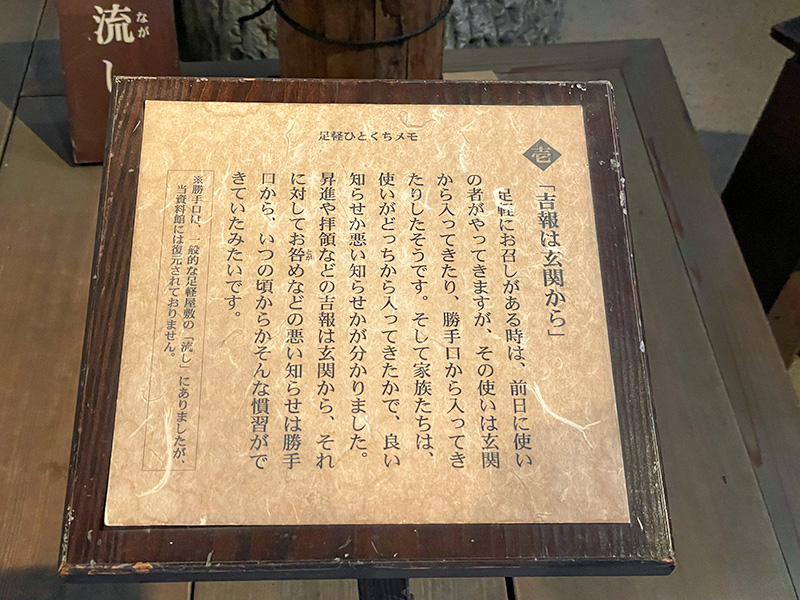 流し
なが
足軽ひとくちメモ
壱
「吉報は玄関から」
足軽にお召しがある時は、前日に使い
の者がやってきますが、その使いは玄関
から入ってきたり、勝手口から入ってき
たりしたそうです。そして家族たちは、
使いがどっちから入ってきたかで、良い
知らせか悪い知らせかが分かりました。
昇進や拝領などの吉報は玄関から、それ
に対してお咎めなどの悪い知らせは勝手
とが
口から、いつの頃からかそんな慣習がで
きていたみたいです。
※勝手口は、一般的な足軽屋敷の「流し」にありましたが、
当資料館には復元されておりません。